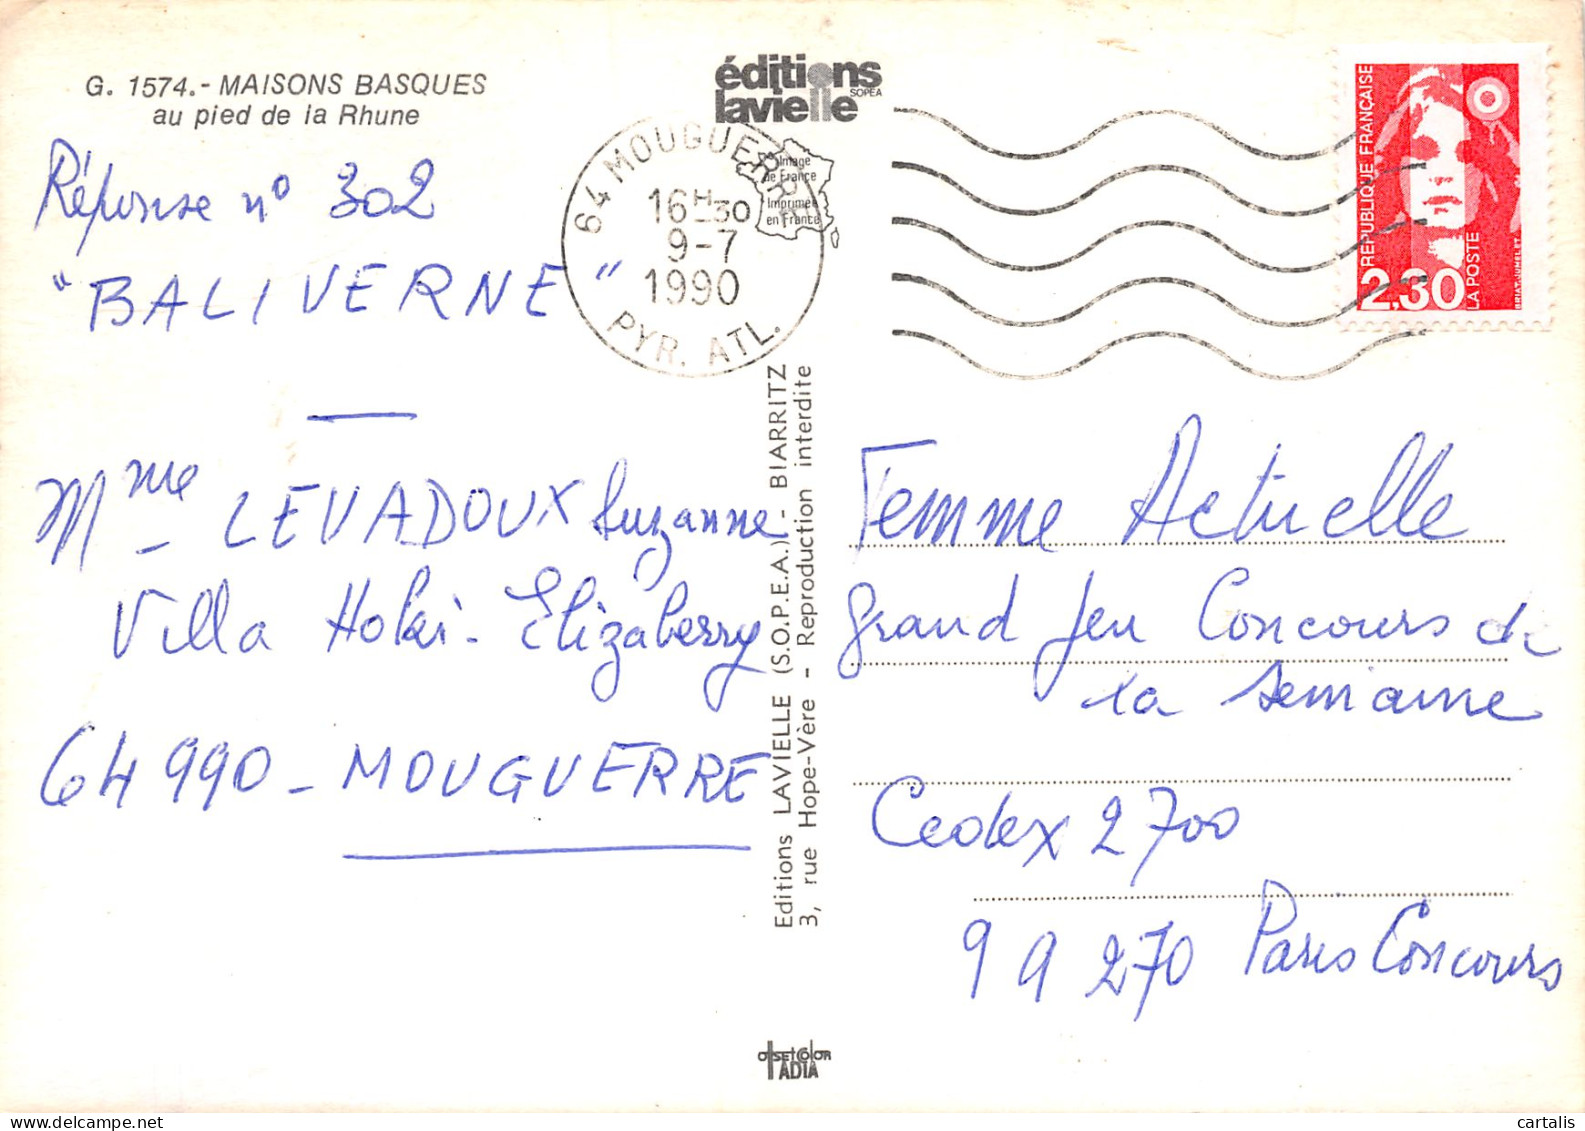 G. 1574.- MAISONS BASQUES
au pied de la Rhune
éditions
lavielle
SOPEA
Image
de France
Imprimée
en France
64 MOUGUERRE
16H-30
9-7
1990
PYR. ATL.
REPUBLIQUE FRANÇAISE
2,30
LA POSTE
BRIAT-JUMELET
Réponse n° 302
"BALIVERNE"
Mme LEVADOUX Suzanne
Villa Hoki- Elizaberry
64990 - MOUGUERRE
Editions LAVIELLE (S.O.P.E.A.) - BIARRITZ
3, rue Hope-Vère - Reproduction interdite
Femme Actuelle
Grand Jeu Concours de
la semaine
Cedex 2700
99270 Paris Concours
OFFSET COLOR
IADIA
cartalis